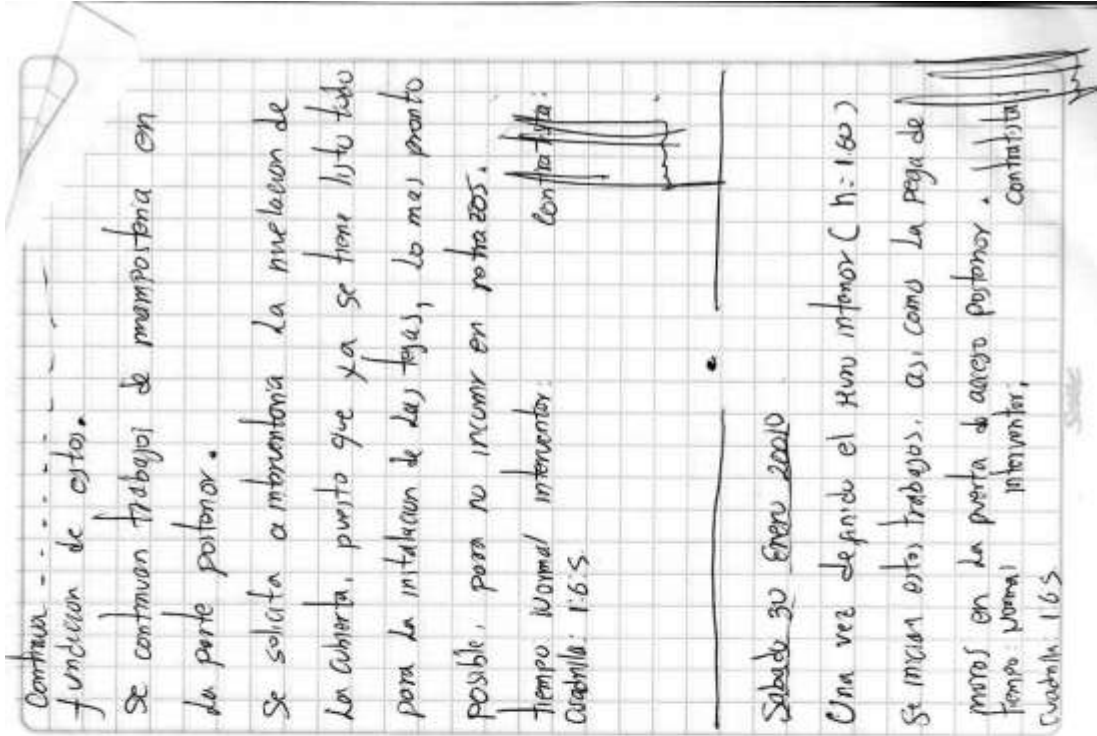 Continua - - - - - - - -
fundicion de estos.
Se continuan trabajos de mamposteria en
La parte posterior.
Se solicita a interventoria La nivelacion de
La cubierta, puesto que ya se tiene listo todo
para La instalacion de Las tejas, Lo mas pronto
posible, para no incurrir en retrazos.
Tiempo: Normal interventor: Contratista:
Cuadrilla: 1:6:5
Sabado 30 Enero 20010
Una vez definido el Muro interior ( h: 1.60)
Se inician estos trabajos. asi como La pega de
muros en La puerta de acceso posterior.
Tiempo: Normal interventor: Contratista:
Cuadrilla: 1:6:5